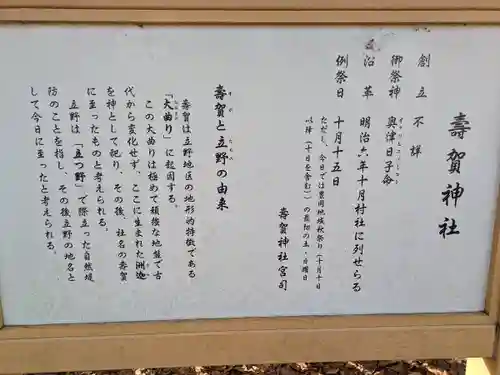 壽賀神社
創立 不詳
御祭神 奥津日子命
沿革 明治六年十月村社に列せらる
例祭日 十月十五日
ただし、今日では豊岡地域秋祭り(十月十日
以降(十日を含む))の最初の土・日曜日
壽賀神社宮司
壽賀と立野の由来
壽賀は立野地区の地形的特徴である
「大曲り」に起因する。
この大曲りは極めて頑健な地盤で古
代から変化せず、ここに生まれた洲
を神として祀り、その後、社名の壽賀
に至ったものと考えられる。
立野は「立つ野」で際立った自然堤
防のことを指し、その後立野の地名と
して今日に至ったと考えられる。